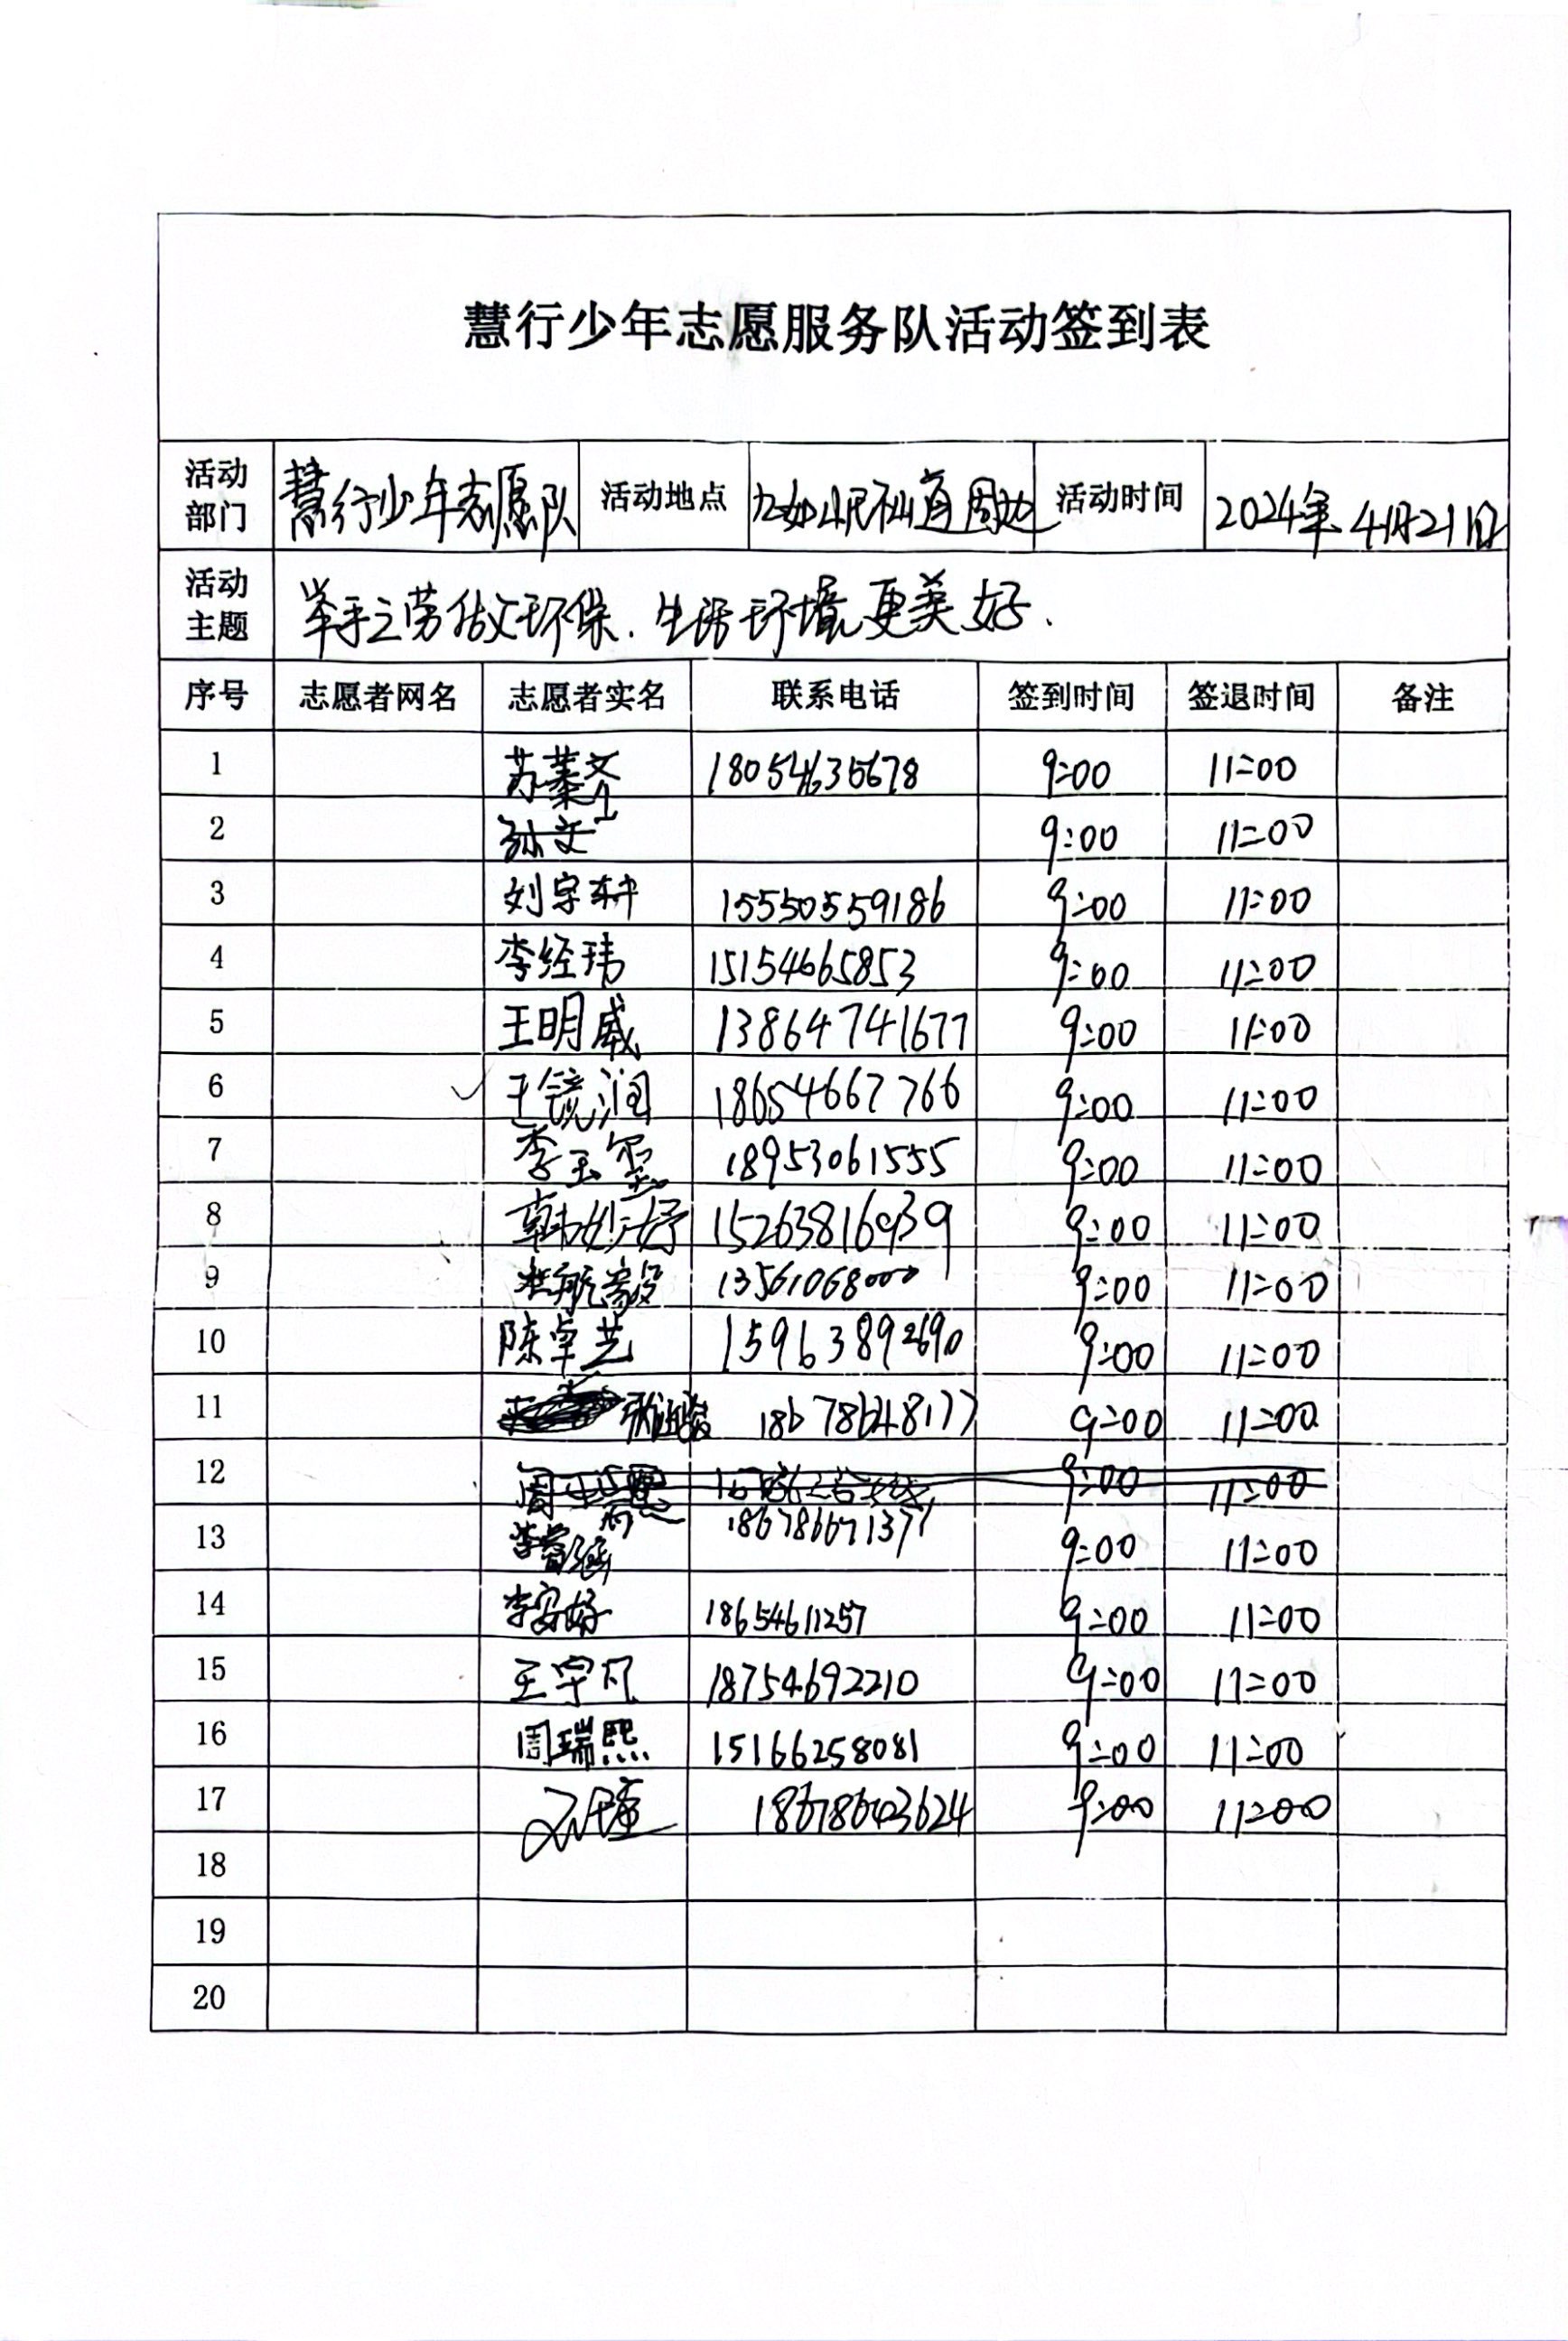 慧行少年志愿服务队活动签到表
活动部门 慧行少年志愿队 活动地点 周边 活动时间 2024年4月21日
活动主题 举手之劳做环保.生活环境更美好.
序号 志愿者网名 志愿者实名 联系电话 签到时间 签退时间 备注
1 苏蓁文 18054635678 9:00 11:00
2 孙文 9:00 11:00
3 刘宇轩 15550559186 9:00 11:00
4 李经玮 15154665853 9:00 11:00
5 王明威 13864741677 9:00 11:00
6 王镜润 18654667766 9:00 11:00
7 李玉玺 18953061555 9:00 11:00
8 韩妙妤 15263816939 9:00 11:00
9 13561068000 9:00 11:00
10 陈卓艺 15963892690 9:00 11:00
11 18678648177 9:00 11:00
12 9:00 11:00
13 李睿涵 18678667137 9:00 11:00
14 李安好 18654611257 9:00 11:00
15 王宇凡 18754692210 9:00 11:00
16 周瑞熙 15166258081 9:00 11:00
17 18678603624 9:00 11:00
18
19
20